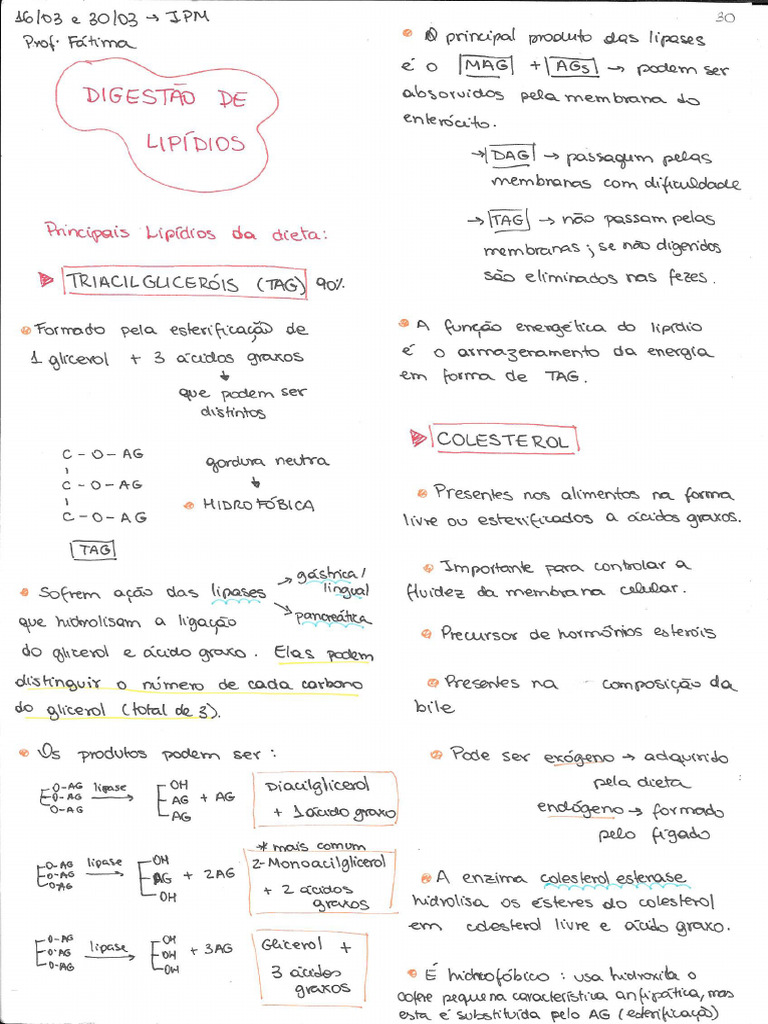 16/03 e 30/03 → IPM
Prof. Fátima
DIGESTÃO DE
LIPÍDIOS
Principais Lipídios da dieta:
TRIACILGLICERÓIS (TAG) 90%
Formado pela esterificação de
1 glicerol + 3 ácidos graxos
que podem ser
distintos
C - O - AG
C - O - AG
C - O - AG
TAG
gordura neutra
HIDROFÓBICA
Sofrem ação das lipases → gástrica/
lingual
→ pancreática
que hidrolisam a ligação
do glicerol e ácido graxo. Elas podem
distinguir o número de cada carbono
do glicerol (total de 3).
Os produtos podem ser:
O-AG
O-AG
O-AG
lipase
OH
AG
AG
+ AG
Diacilglicerol
+ 1 ácido graxo
* mais comum
O-AG
O-AG
O-AG
lipase
OH
AG
OH
+ 2AG
2-Monoacilglicerol
+ 2 ácidos
graxos
O-AG
O-AG
O-AG
lipase
OH
OH
OH
+ 3AG
Glicerol +
3 ácidos
graxos
30
O principal produto das lipases
é o MAG + AGs → podem ser
absorvidos pela membrana do
enterócito.
→ DAG → passagum pelas
membranas com dificuldade
→ TAG → não passam pelas
membranas; se não digeridos
são eliminados nas fezes.
A função energética do lipídio
é o armazenamento da energia
em forma de TAG.
COLESTEROL
Presentes nos alimentos na forma
livre ou esterificados a ácidos graxos.
Importante para controlar a
fluidez da membrana celular.
Precursor de hormônios esteróis
Presentes na composição da
bile
Pode ser exógeno → adquirido
pela dieta
endógeno → formado
pelo fígado
A enzima colesterol esterase
hidrolisa os ésteres do colesterol
em colesterol livre e ácido graxo.
É hidrofóbico: usa hidroxila o
confere pequena característica anfipática, mas
esta é substituída pelo AG (esterificação)